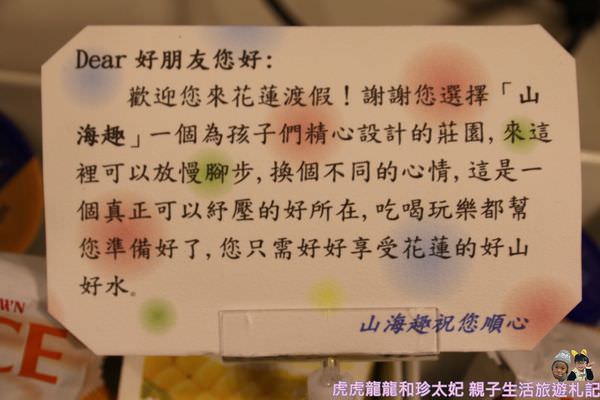 Dear 好朋友您好:
歡迎您來花蓮渡假！謝謝您選擇「山
海趣」一個為孩子們精心設計的莊園, 來這
裡可以放慢腳步, 換個不同的心情, 這是一
個真正可以紓壓的好所在, 吃喝玩樂都幫
您準備好了, 您只需好好享受花蓮的好山
好水。
山海趣祝您順心
虎虎龍龍和珍太妃 親子生活旅遊札記